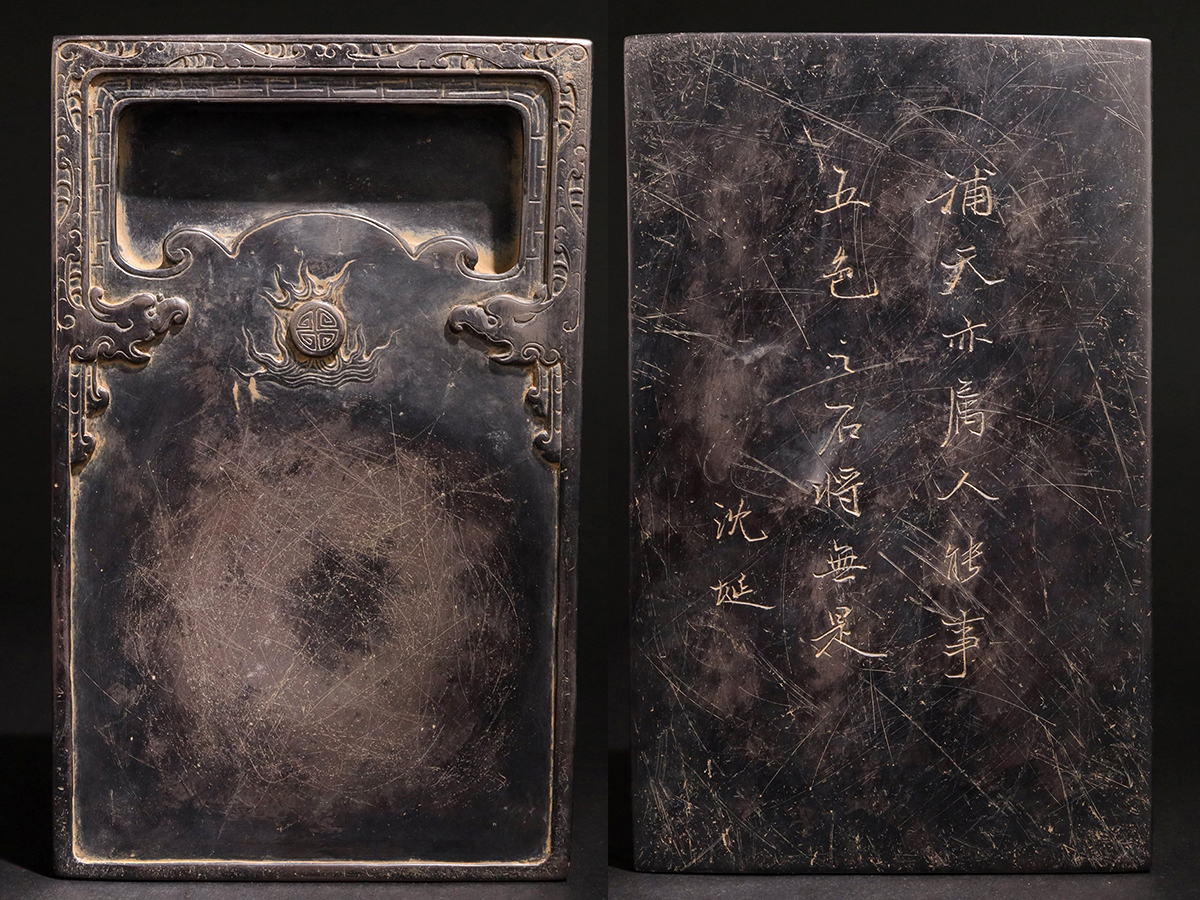 補天亦属人能事
五色之石將無是
沈埏